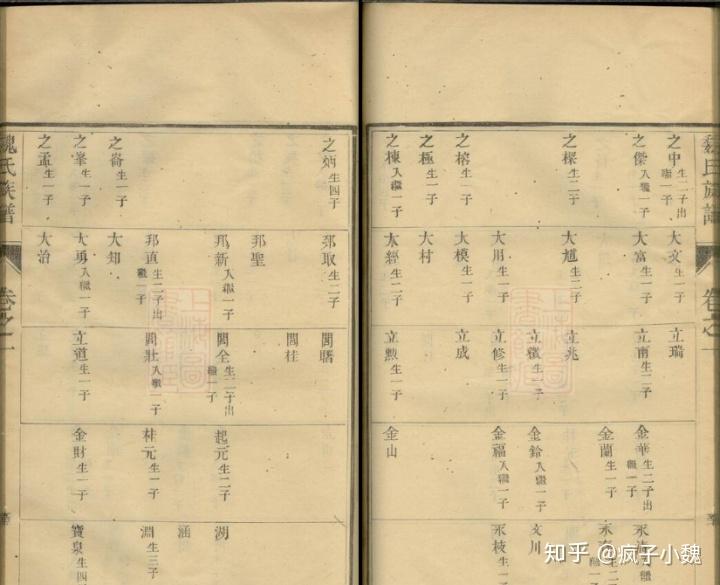 魏氏族譜
卷之一
之中生二子出繼一子
之傑入繼一子
之樑生二子
之榕生一子
之極生一子
之棟入繼一子
大文生一子
大富生一子
大道生二子
大用生一子
大模生一子
大村
大經生二子
立瑞
立南生二子
立兆
立徵生一子
立修生一子
立成
立勲生一子
金華生二子出繼一子
金蘭生一子
金鈴入繼一子
金福入繼一子
金山
文川
永枝生一子
之炳生四子
之崙生一子
之峯生一子
之孟生一子
邦取生二子
邦聖
邦新入繼一子
邦直生二子出繼一子
大知
大勇入繼一子
大治
閣曙
閣桂
閣全生二子出繼一子
閣壯入繼一子
立道生一子
起元生二子
桂元生一子
金財生一子
湖
涵
淵生三子
寶泉生四
魏氏族譜
卷之一
知乎 @疯子小魏